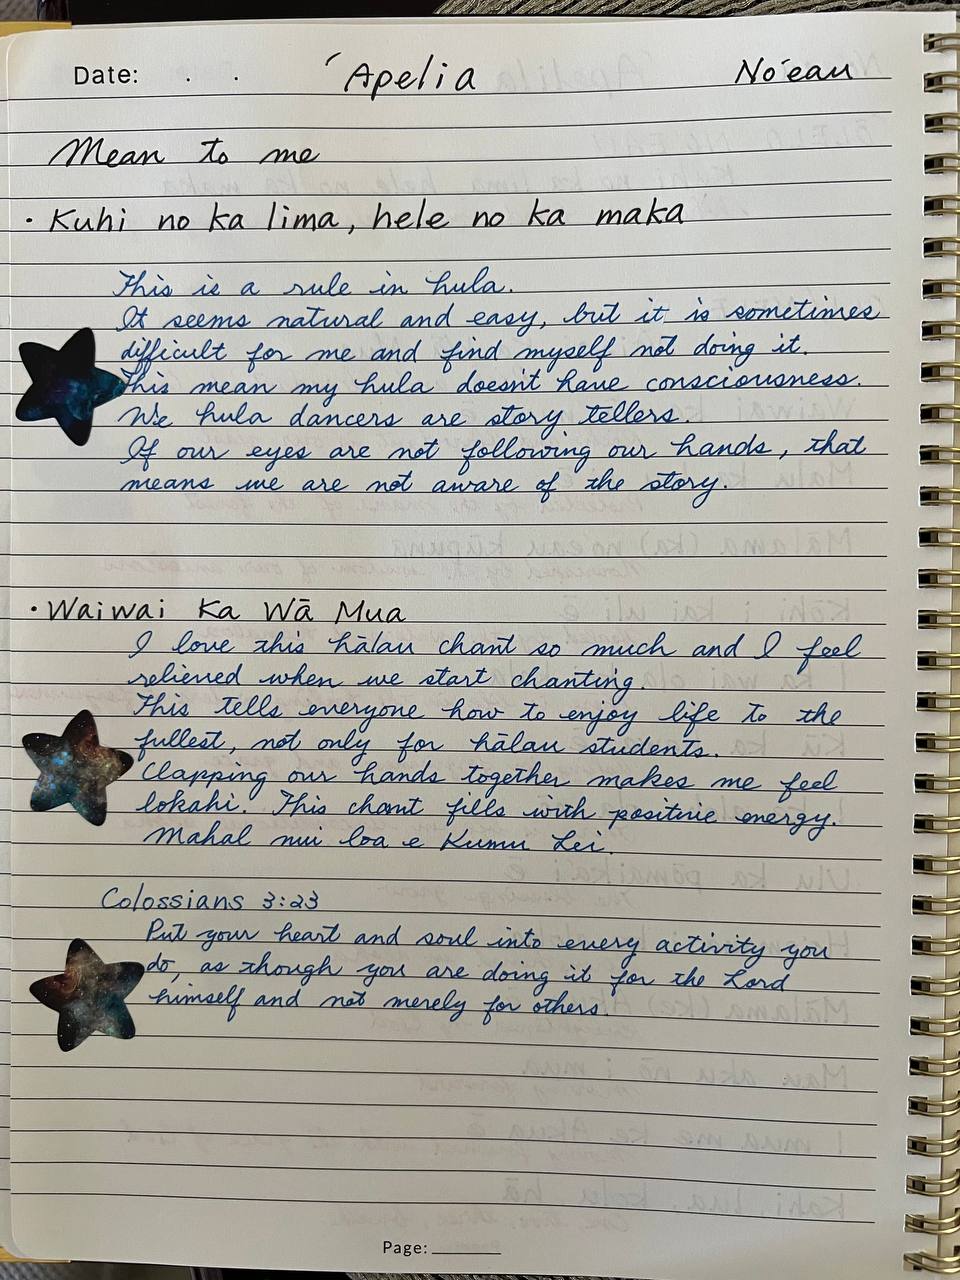 Date: . . 'Apelia No'eau
Mean to me
• Kuhi no ka lima, hele no ka maka
This is a rule in hula.
It seems natural and easy, but it is sometimes
difficult for me and find myself not doing it.
This mean my hula doesn't have consciousness.
We hula dancers are story tellers.
If our eyes are not following our hands, that
means we are not aware of the story.
• Waiwai Ka Wā Mua
I love this hālau chant so much and I feel
relieved when we start chanting.
This tells everyone how to enjoy life to the
fullest, not only for hālau students.
Clapping our hands together makes me feel
lokahi. This chant fills with positive energy.
Mahal nui loa e Kumu Lei.
Colossians 3:23
Put your heart and soul into every activity you
do, as though you are doing it for the Lord
himself and not merely for others
Page: